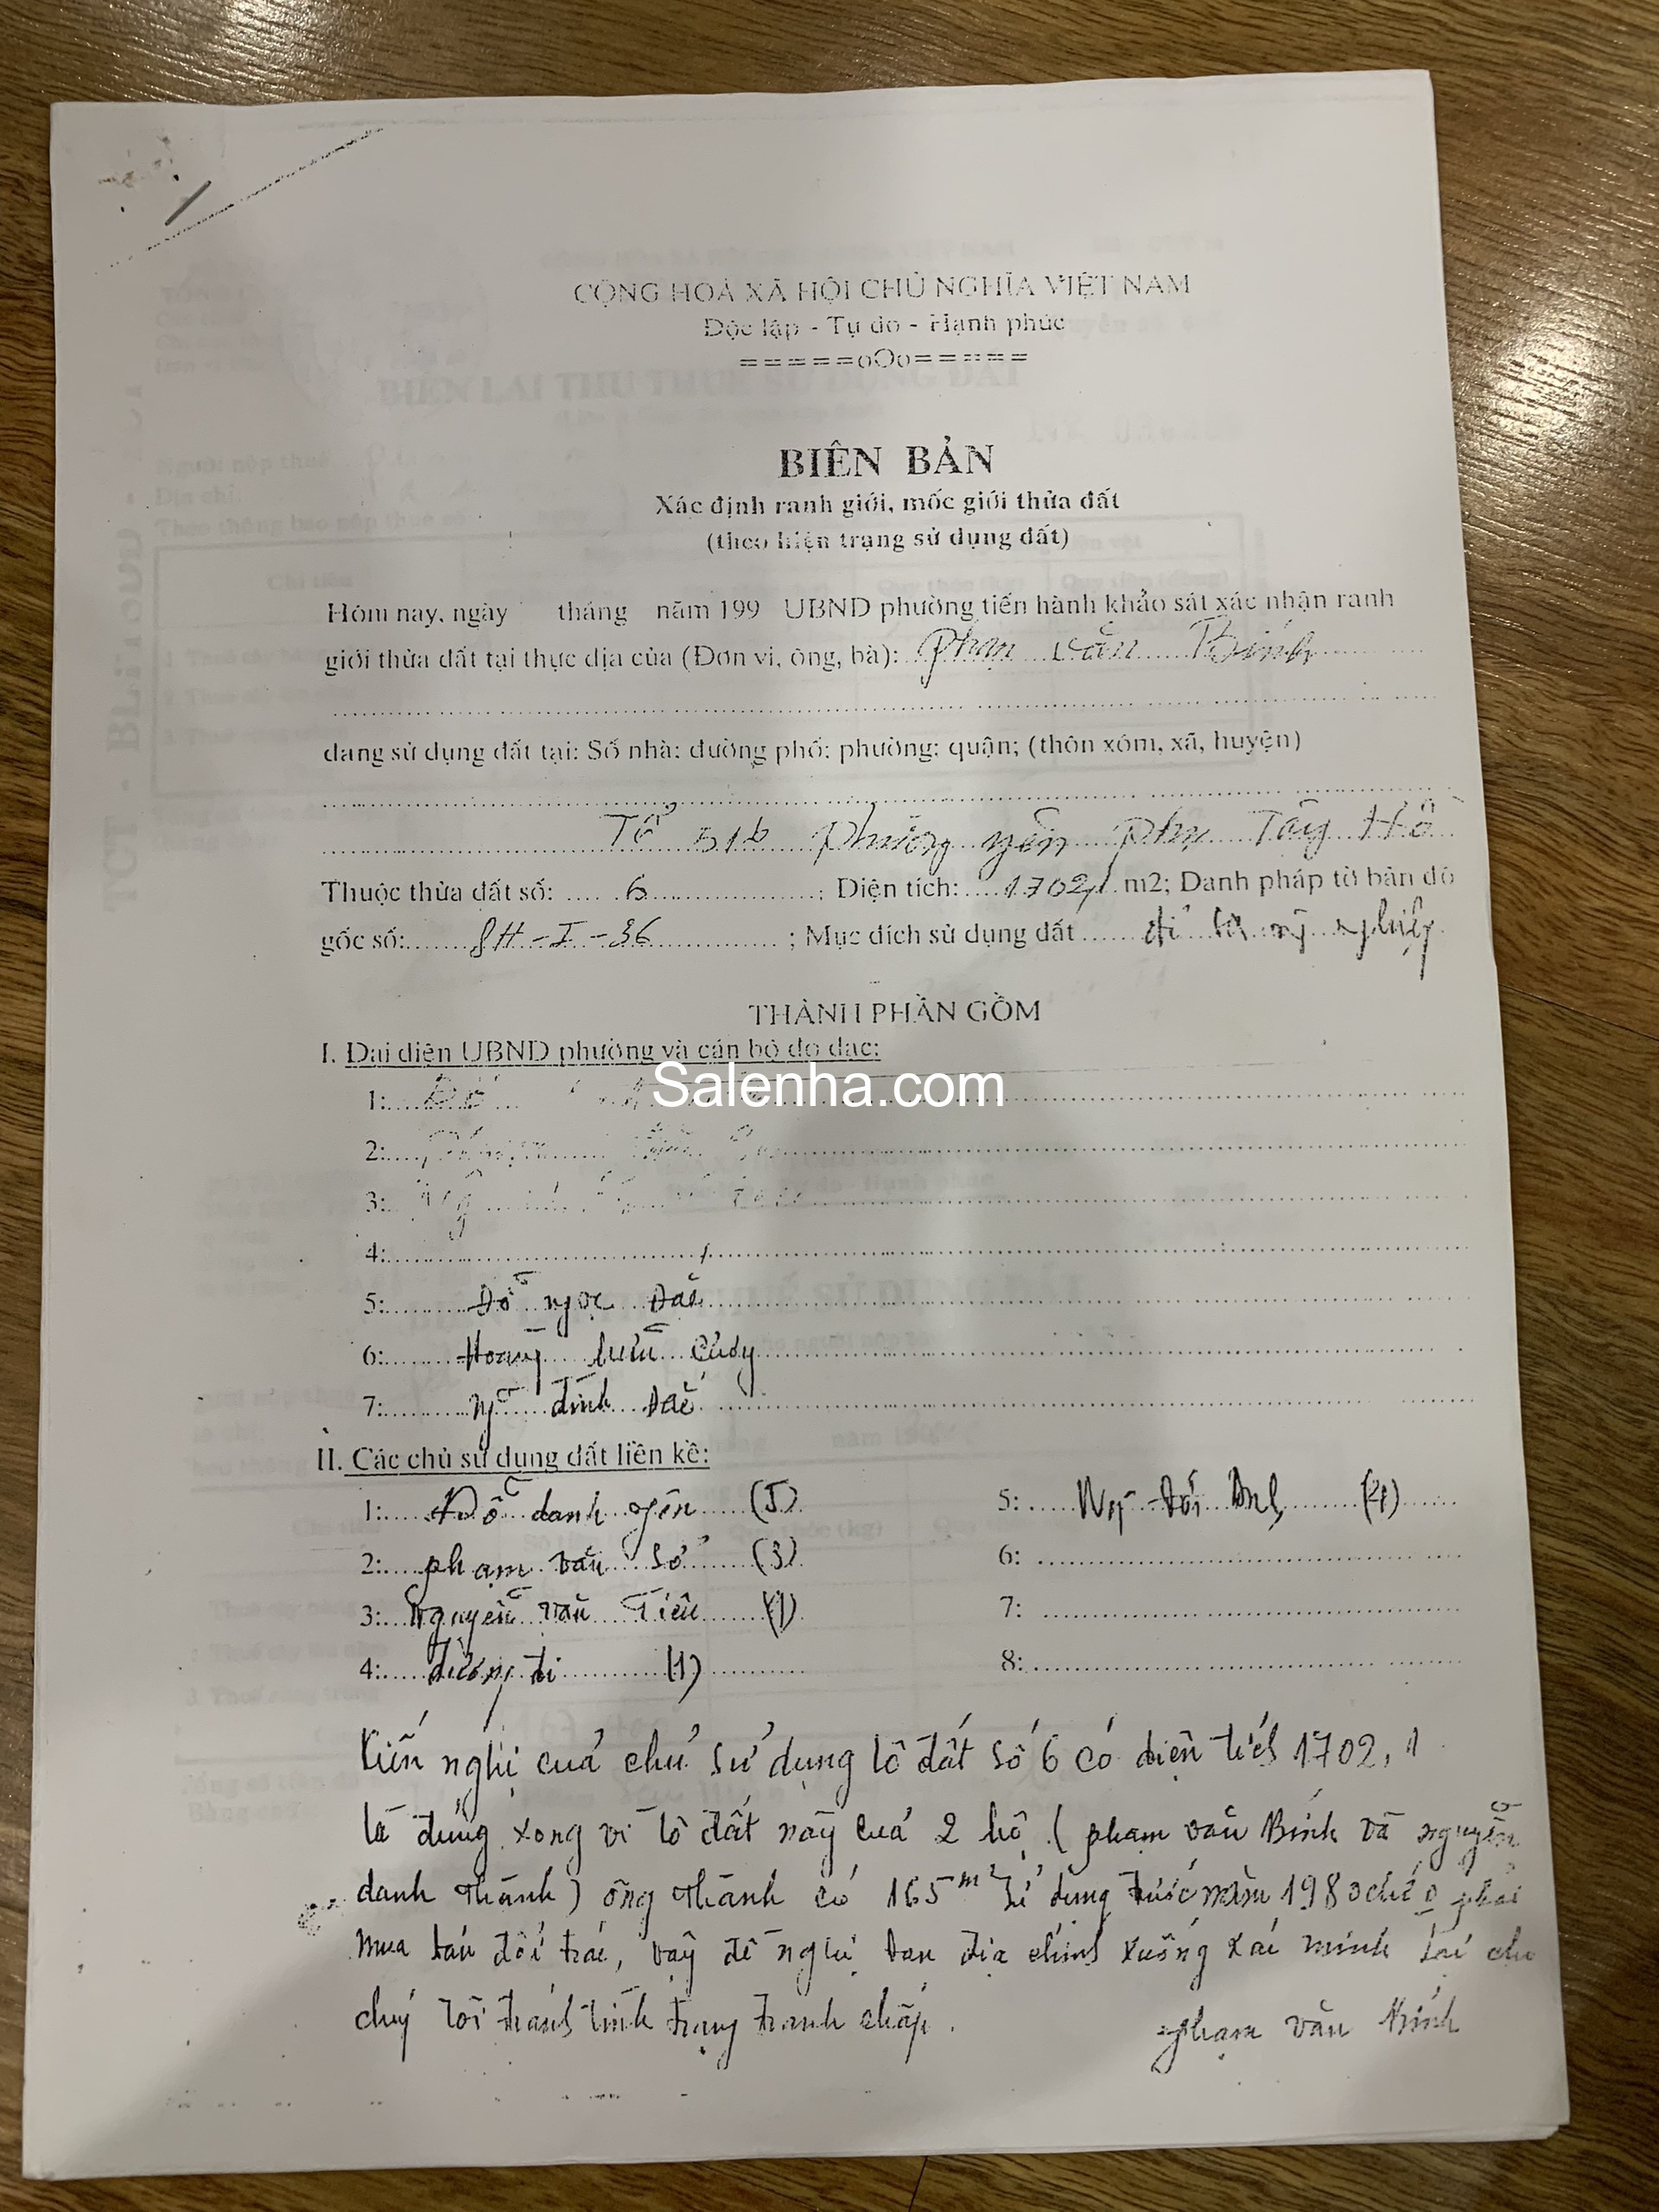 CỘNG HOÀ XÃ HỘI CHỦ NGHĨA VIỆT NAM
Độc lập - Tự do - Hạnh phúc
=====oOo=====
BIÊN BẢN
Xác định ranh giới, mốc giới thửa đất
(theo hiện trạng sử dụng đất)
Hôm nay, ngày tháng năm 199 UBND phường tiến hành khảo sát xác nhận ranh
giới thửa đất tại thực địa của (Đơn vị, ông, bà): Phạm văn Bính
đang sử dụng đất tại: Số nhà; đường phố; phường; quận; (thôn xóm, xã, huyện)
Tổ 51b Phường yên phụ Tây Hồ
Thuộc thửa đất số: 6 ; Diện tích: 1702,1 m2; Danh pháp tờ bản đồ
gốc số: 8H-I-36 ; Mục đích sử dụng đất
THÀNH PHẦN GỒM
I. Đại diện UBND phường và cán bộ đo đạc:
Salenha.com
1:
2:
3:
4:
5: Đỗ ngọc
6: Hoàng
7: đình
II. Các chủ sử dụng đất liền kề:
1: Đỗ danh yên (5) 5: (21)
2: phạm văn sở (3) 6:
3: Nguyễn văn Tiêu (1) 7:
4: đường đi (1) 8:
Kiến nghị của chủ sử dụng lô đất số 6 có diện tích 1702,1
là đúng xong vì lô đất này của 2 hộ (phạm văn Bính và nguyễn
danh thành) ông thành có 165m² sử dụng trước năm 1980 chứ o phải
mua bán đổi trác, vậy đề nghị ban địa chính xuống xác minh lại cho
chúng tôi tránh tình trạng tranh chấp.
phạm văn Bính